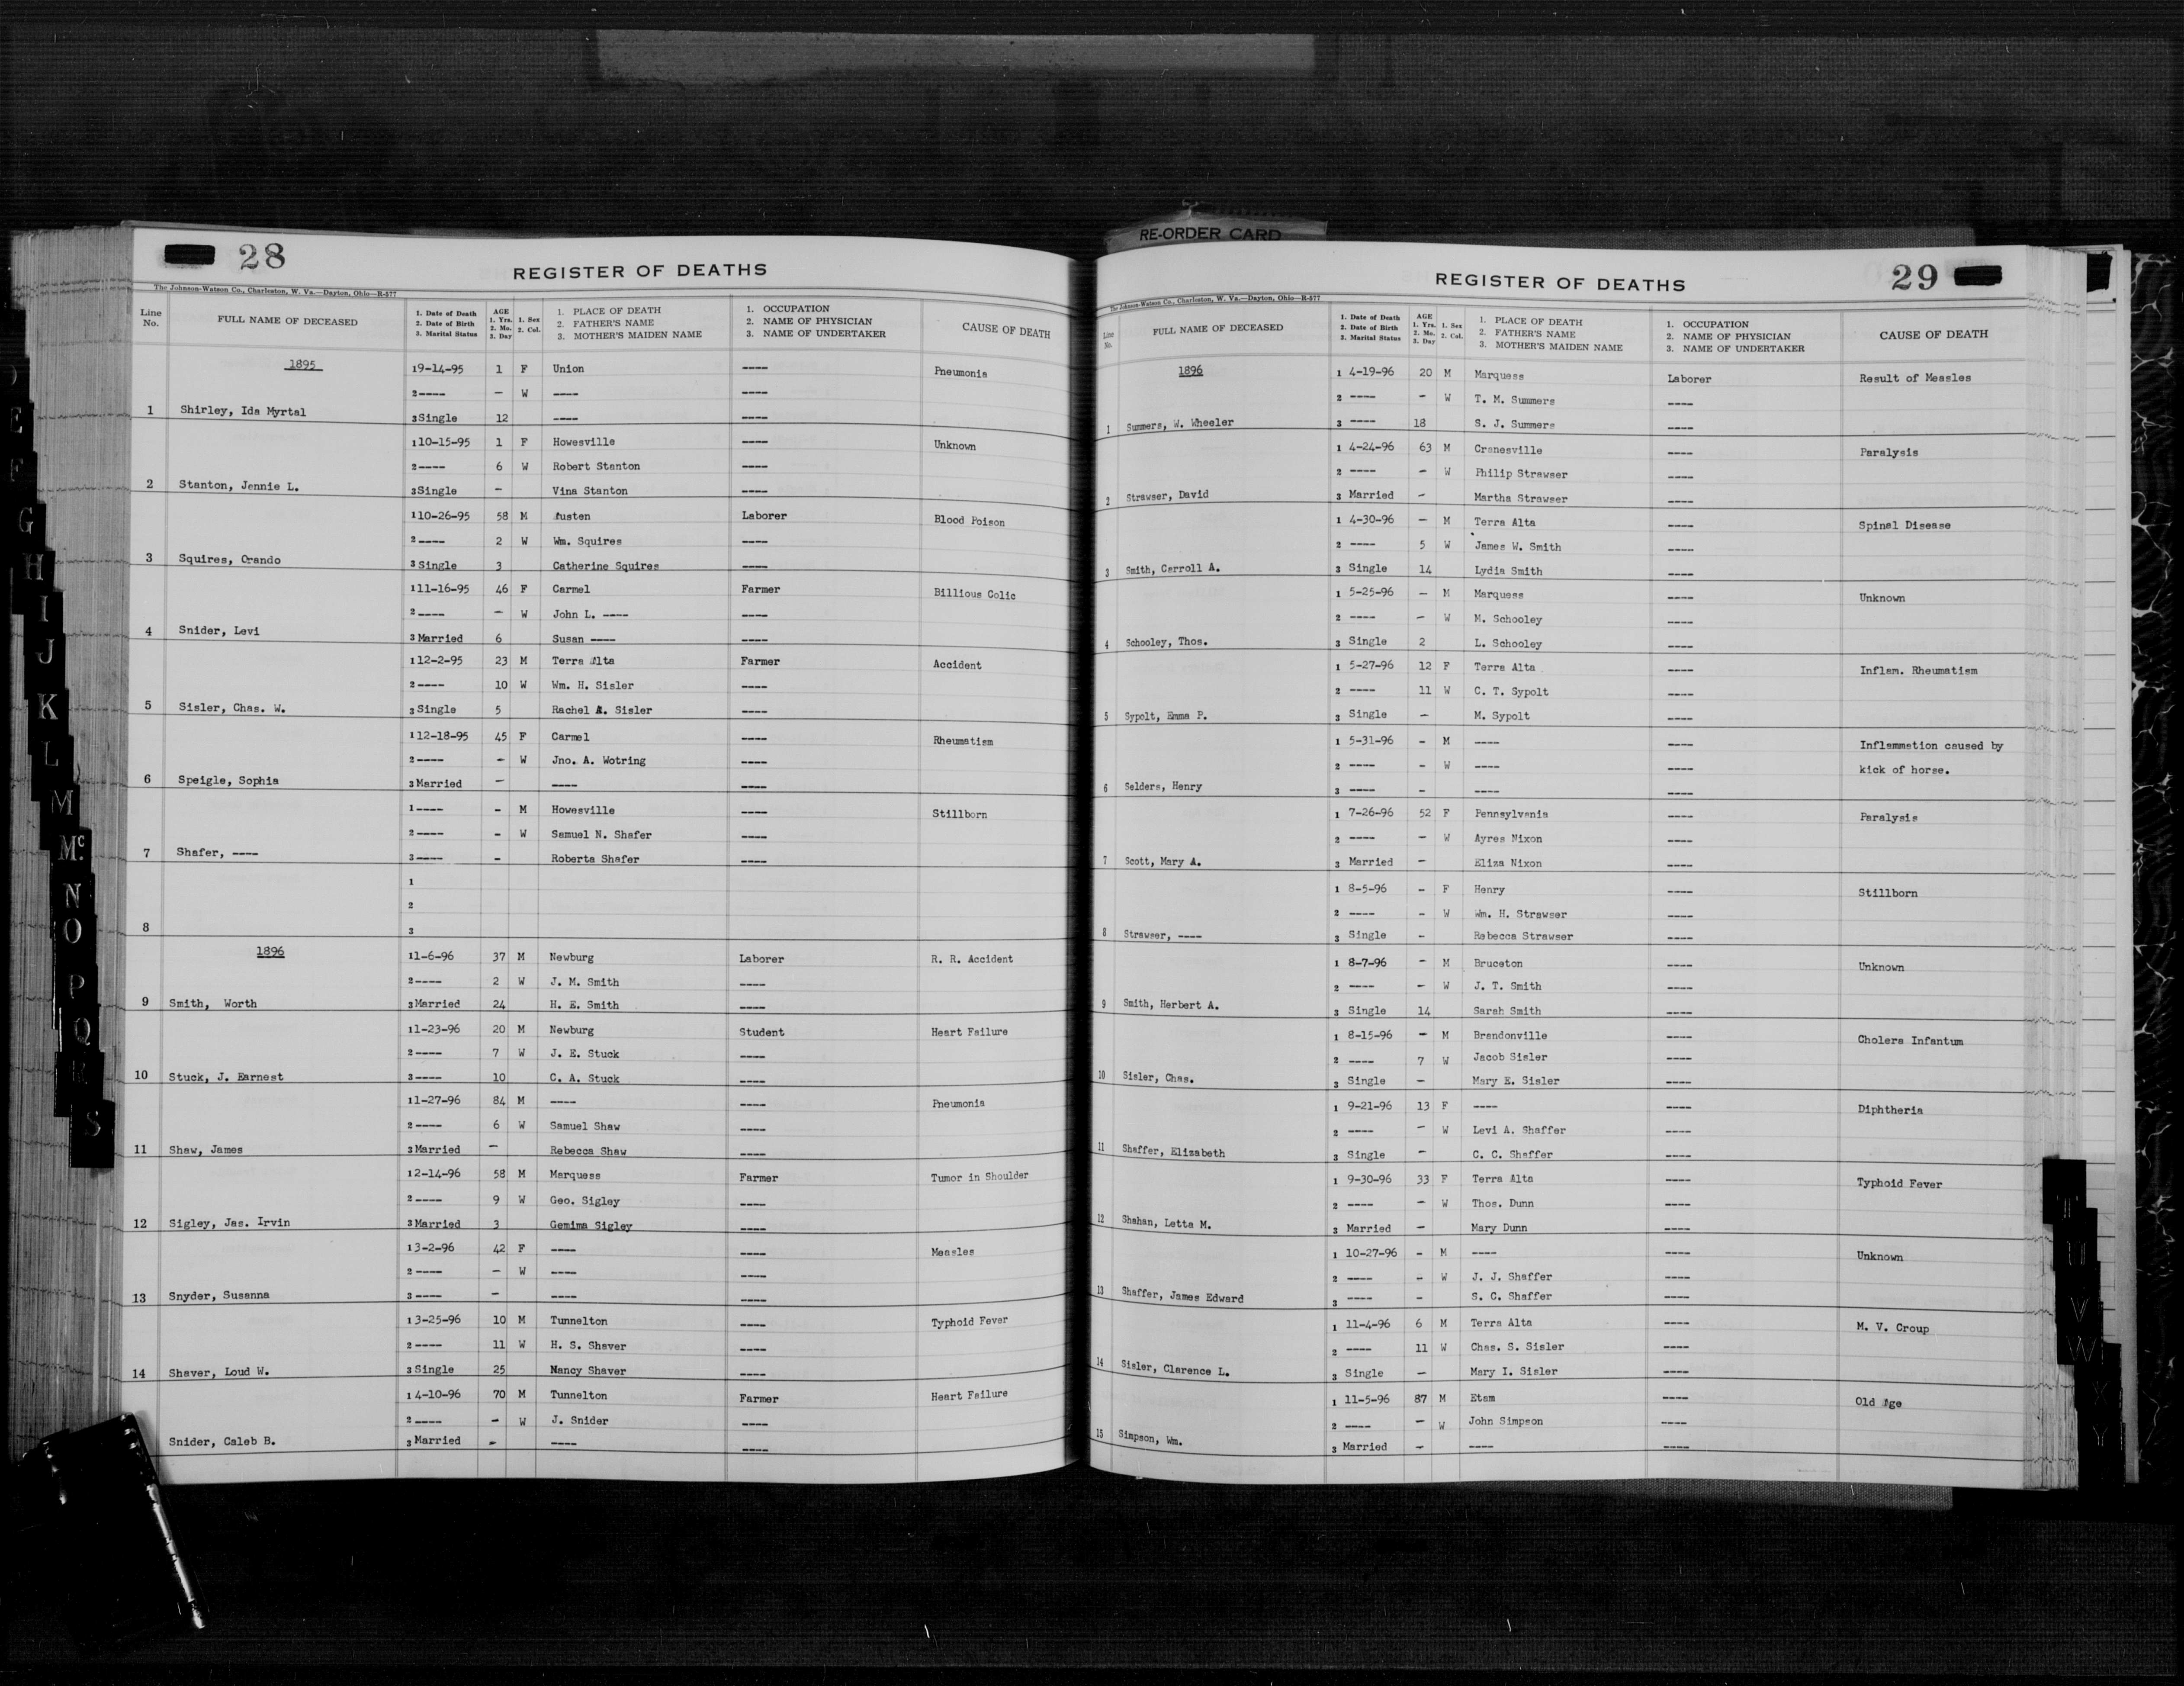 RE-ORDER CARD
28
REGISTER OF DEATHS
The Johnson-Watson Co., Charleston, W. Va.—Dayton, Ohio—R-577
Line No. FULL NAME OF DECEASED 1. Date of Death 2. Date of Birth 3. Marital Status AGE 1. Yrs. 2. Mo. 3. Day 1. Sex 2. Col. 1. PLACE OF DEATH 2. FATHER'S NAME 3. MOTHER'S MAIDEN NAME 1. OCCUPATION 2. NAME OF PHYSICIAN 3. NAME OF UNDERTAKER CAUSE OF DEATH
1895 1 9-14-95 1 F Union ---- Pneumonia
2 ---- - W ---- ----
1 Shirley, Ida Myrtal 3 Single 12 ---- ----
1 10-15-95 1 F Howesville ---- Unknown
2 ---- 6 W Robert Stanton ----
2 Stanton, Jennie L. 3 Single - Vina Stanton ----
1 10-26-95 58 M Austen Laborer Blood Poison
2 ---- 2 W Wm. Squires ----
3 Squires, Orando 3 Single 3 Catherine Squires ----
1 11-16-95 46 F Carmel Farmer Billious Colic
2 ---- - W John L. ---- ----
4 Snider, Levi 3 Married 6 Susan ---- ----
1 12-2-95 23 M Terra Alta Farmer Accident
2 ---- 10 W Wm. H. Sisler ----
5 Sisler, Chas. W. 3 Single 5 Rachel A. Sisler ----
1 12-18-95 45 F Carmel ---- Rheumatism
2 ---- - W Jno. A. Wotring ----
6 Speigle, Sophia 3 Married - ---- ----
1 ---- - M Howesville ---- Stillborn
2 ---- - W Samuel N. Shafer ----
7 Shafer, ---- 3 ---- - Roberta Shafer ----
1
2
8 3
1896 1 1-6-96 37 M Newburg Laborer R. R. Accident
2 ---- 2 W J. M. Smith ----
9 Smith, Worth 3 Married 24 H. E. Smith ----
1 1-23-96 20 M Newburg Student Heart Failure
2 ---- 7 W J. E. Stuck ----
10 Stuck, J. Earnest 3 ---- 10 C. A. Stuck ----
1 1-27-96 84 M ---- ---- Pneumonia
2 ---- 6 W Samuel Shaw ----
11 Shaw, James 3 Married - Rebecca Shaw ----
1 2-14-96 58 M Marquess Farmer Tumor in Shoulder
2 ---- 9 W Geo. Sigley ----
12 Sigley, Jas. Irvin 3 Married 3 Gemima Sigley ----
1 3-2-96 42 F ---- ---- Measles
2 ---- - W ---- ----
13 Snyder, Susanna 3 ---- - ---- ----
1 3-25-96 10 M Tunnelton ---- Typhoid Fever
2 ---- 11 W H. S. Shaver ----
14 Shaver, Loud W. 3 Single 25 Nancy Shaver ----
1 4-10-96 70 M Tunnelton Farmer Heart Failure
2 ---- - W J. Snider ----
Snider, Caleb B. 3 Married - ---- ----
29
REGISTER OF DEATHS
The Johnson-Watson Co., Charleston, W. Va.—Dayton, Ohio—R-577
Line No. FULL NAME OF DECEASED 1. Date of Death 2. Date of Birth 3. Marital Status AGE 1. Yrs. 2. Mo. 3. Day 1. Sex 2. Col. 1. PLACE OF DEATH 2. FATHER'S NAME 3. MOTHER'S MAIDEN NAME 1. OCCUPATION 2. NAME OF PHYSICIAN 3. NAME OF UNDERTAKER CAUSE OF DEATH
1896 1 4-19-96 20 M Marquess Laborer Result of Measles
2 ---- - W T. M. Summers ----
1 Summers, W. Wheeler 3 ---- 18 S. J. Summers ----
1 4-24-96 63 M Cranesville ---- Paralysis
2 ---- - W Philip Strawser ----
2 Strawser, David 3 Married - Martha Strawser ----
1 4-30-96 - M Terra Alta ---- Spinal Disease
2 ---- 5 W James W. Smith ----
3 Smith, Carroll A. 3 Single 14 Lydia Smith ----
1 5-25-96 - M Marquess ---- Unknown
2 ---- - W M. Schooley ----
4 Schooley, Thos. 3 Single 2 L. Schooley ----
1 5-27-96 12 F Terra Alta ---- Inflam. Rheumatism
2 ---- 11 W C. T. Sypolt ----
5 Sypolt, Emma P. 3 Single - M. Sypolt ----
1 5-31-96 - M ---- ---- Inflammation caused by
2 ---- - W ---- ---- kick of horse.
6 Selders, Henry 3 ---- - ---- ----
1 7-26-96 52 F Pennsylvania ---- Paralysis
2 ---- - W Ayres Nixon ----
7 Scott, Mary A. 3 Married - Eliza Nixon ----
1 8-5-96 - F Henry ---- Stillborn
2 ---- - W Wm. H. Strawser ----
8 Strawser, ---- 3 Single - Rebecca Strawser ----
1 8-7-96 - M Bruceton ---- Unknown
2 ---- - W J. T. Smith ----
9 Smith, Herbert A. 3 Single 14 Sarah Smith ----
1 8-15-96 - M Brandonville ---- Cholera Infantum
2 ---- 7 W Jacob Sisler ----
10 Sisler, Chas. 3 Single - Mary E. Sisler ----
1 9-21-96 13 F ---- ---- Diphtheria
2 ---- - W Levi A. Shaffer ----
11 Shaffer, Elizabeth 3 Single - C. C. Shaffer ----
1 9-30-96 33 F Terra Alta ---- Typhoid Fever
2 ---- - W Thos. Dunn ----
12 Shahan, Letta M. 3 Married - Mary Dunn ----
1 10-27-96 - M ---- ---- Unknown
2 ---- - W J. J. Shaffer ----
13 Shaffer, James Edward 3 ---- - S. C. Shaffer ----
1 11-4-96 6 M Terra Alta ---- M. V. Croup
2 ---- 11 W Chas. S. Sisler ----
14 Sisler, Clarence L. 3 Single - Mary I. Sisler ----
1 11-5-96 87 M Etam ---- Old Age
2 ---- - W John Simpson ----
15 Simpson, Wm. 3 Married - ---- ----
E
F
G
H
I
J
K
L
M
Mc.
N
O
P
Q
R
S
V
W
X
Y